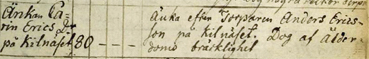 Änkan Ca= Änka efter Torparen Anders Erics=
rin Erics D:r son på Kilnäset. Dog af ålder=
på Kilnäset 80 — — — doms bräcklighet